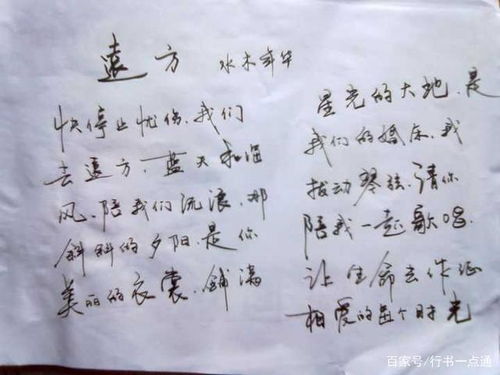 遠方 水木年华
快停止忧伤、我们
去遠方、蓝天和温
风、陪我们流浪、那
斜斜的夕阳、是你
美丽的衣裳、鋪满
星光的大地、是
我们的婚床、我
拔动琴弦、请你
陪我一起歌唱、
让生命去作证
相爱的每个时光
百家号/行书一点通